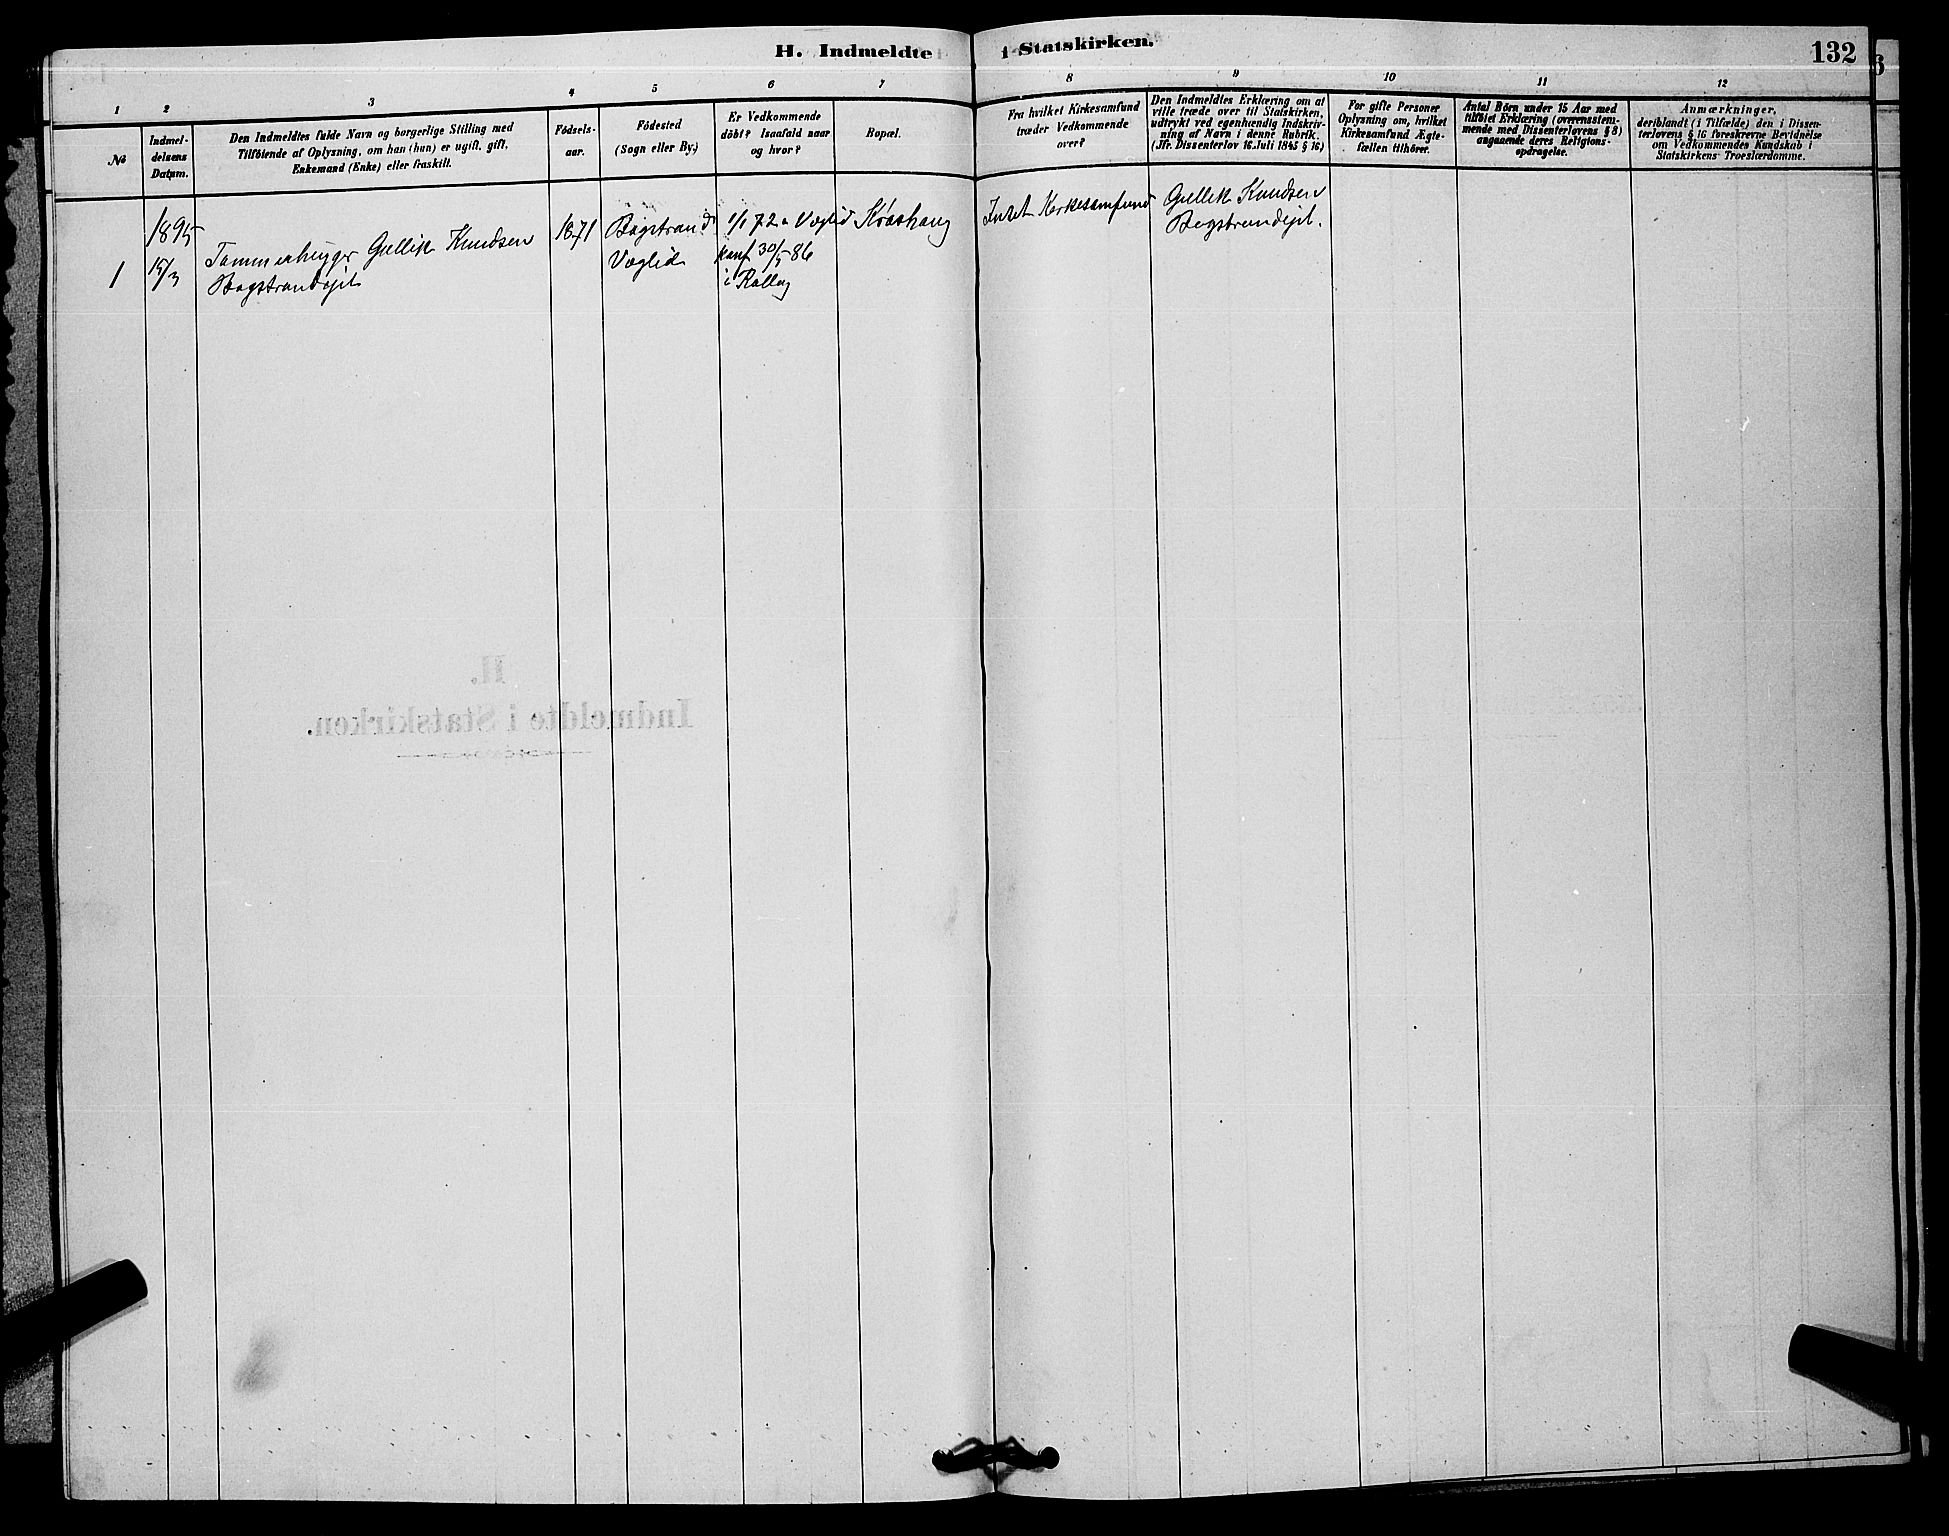 H. Indmeldte i Statskirken.
132
1
2
3
4
5
6
7
8
9
10
11
12
№
Indmel-
delsens
Datum.
Den Indmeldtes fulde Navn og borgerlige Stilling med
Tilföiende af Oplysning, om han (hun) er ugift, gift,
Enkemand (Enke) eller fraskilt.
Födsels-
aar.
Födested
(Sogn eller By.)
Er Vedkommende
döbt? Isaafald naar
og hvor?
Bopæl.
Fra hvilket Kirkesamfund
træder Vedkommende
over?
Den Indmeldtes Erklæring om at
ville træde over til Statskirken,
udtrykt ved egenhændig Indskriv-
ning af Navn i denne Rubrik.
(Jfr. Dissenterlov 16. Juli 1845 § 16)
For gifte Personer
Oplysning om, hvilket
Kirkesamfund Ægte-
fællen tilhörer.
Antal Börn under 15 Aar med
tilföiet Erklæring (overensstem-
mende med Dissenterlovens § 8)
angaaende deres Religions-
opdragelse.
Anmærkninger,
deriblandt (i Tilfælde) den i Dissen-
terlovens § 16 foreskrevne Bevidnelse
om Vedkommendes Kundskab i
Statskirkens Troeslærdomme.
1
1895
15/3
Tømmerhugger Gullik Knudsen
Bogstrandejet
1871
Bogstrand
Væglid
1/1 72 i Væglid
konf 30/5 86
i Rollag
Intet Kirkesamfund
Gullik Knudsen
Bogstrandejet.
H.
Indmeldte i Statskirken.